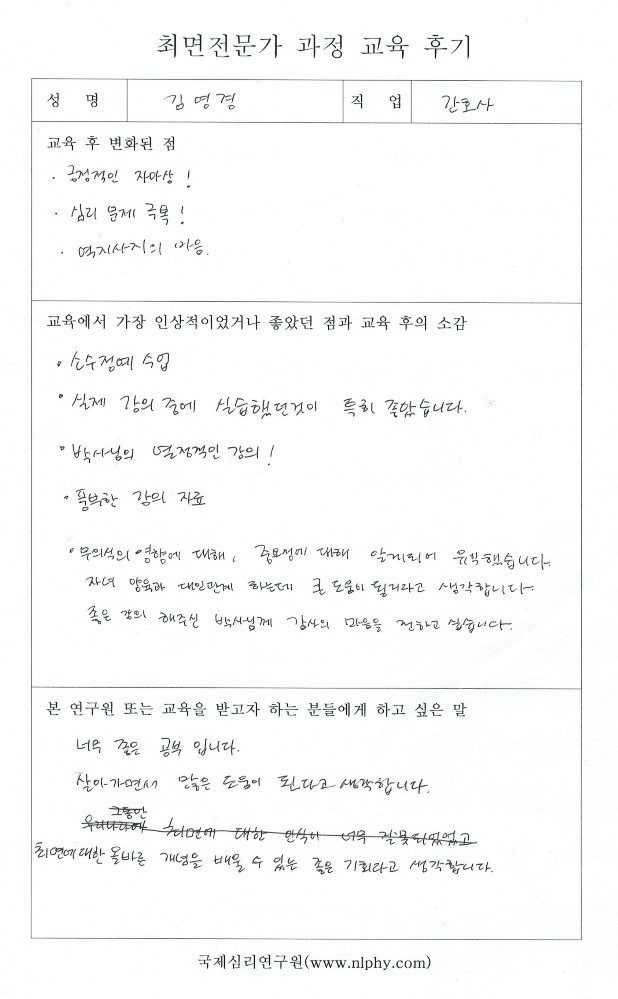 최면전문가 과정 교육 후기
성 명 김영경 직 업 간호사
교육 후 변화된 점
· 긍정적인 자아상 !
· 심리 문제 극복 !
· 역지사지의 마음.
교육에서 가장 인상적이었거나 좋았던 점과 교육 후의 소감
• 소수정예 수업
• 실제 강의 중에 실습했던것이 특히 좋았습니다.
• 박사님의 열정적인 강의 !
• 풍부한 강의 자료
• 무의식의 영향에 대해, 중요성에 대해 알게되어 유익했습니다.
자녀 양육과 대인관계 하는데 큰 도움이 될거라고 생각합니다.
좋은 강의 해주신 박사님께 감사의 마음을 전하고 싶습니다.
본 연구원 또는 교육을 받고자 하는 분들에게 하고 싶은 말
너무 좋은 공부 입니다.
살아가면서 많은 도움이 된다고 생각합니다.
그동안
우리나라에 최면에 대한 인식이 너무 잘못되었었고
최면에 대한 올바른 개념을 배울 수 있는 좋은 기회라고 생각합니다.
국제심리연구원(www.nlphy.com)